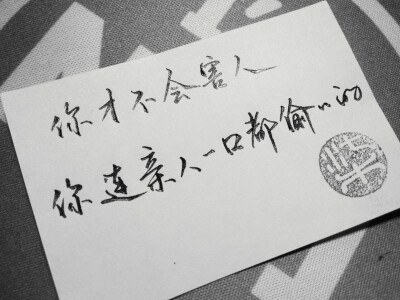 你才不会害人
你连亲人一口都偷心的